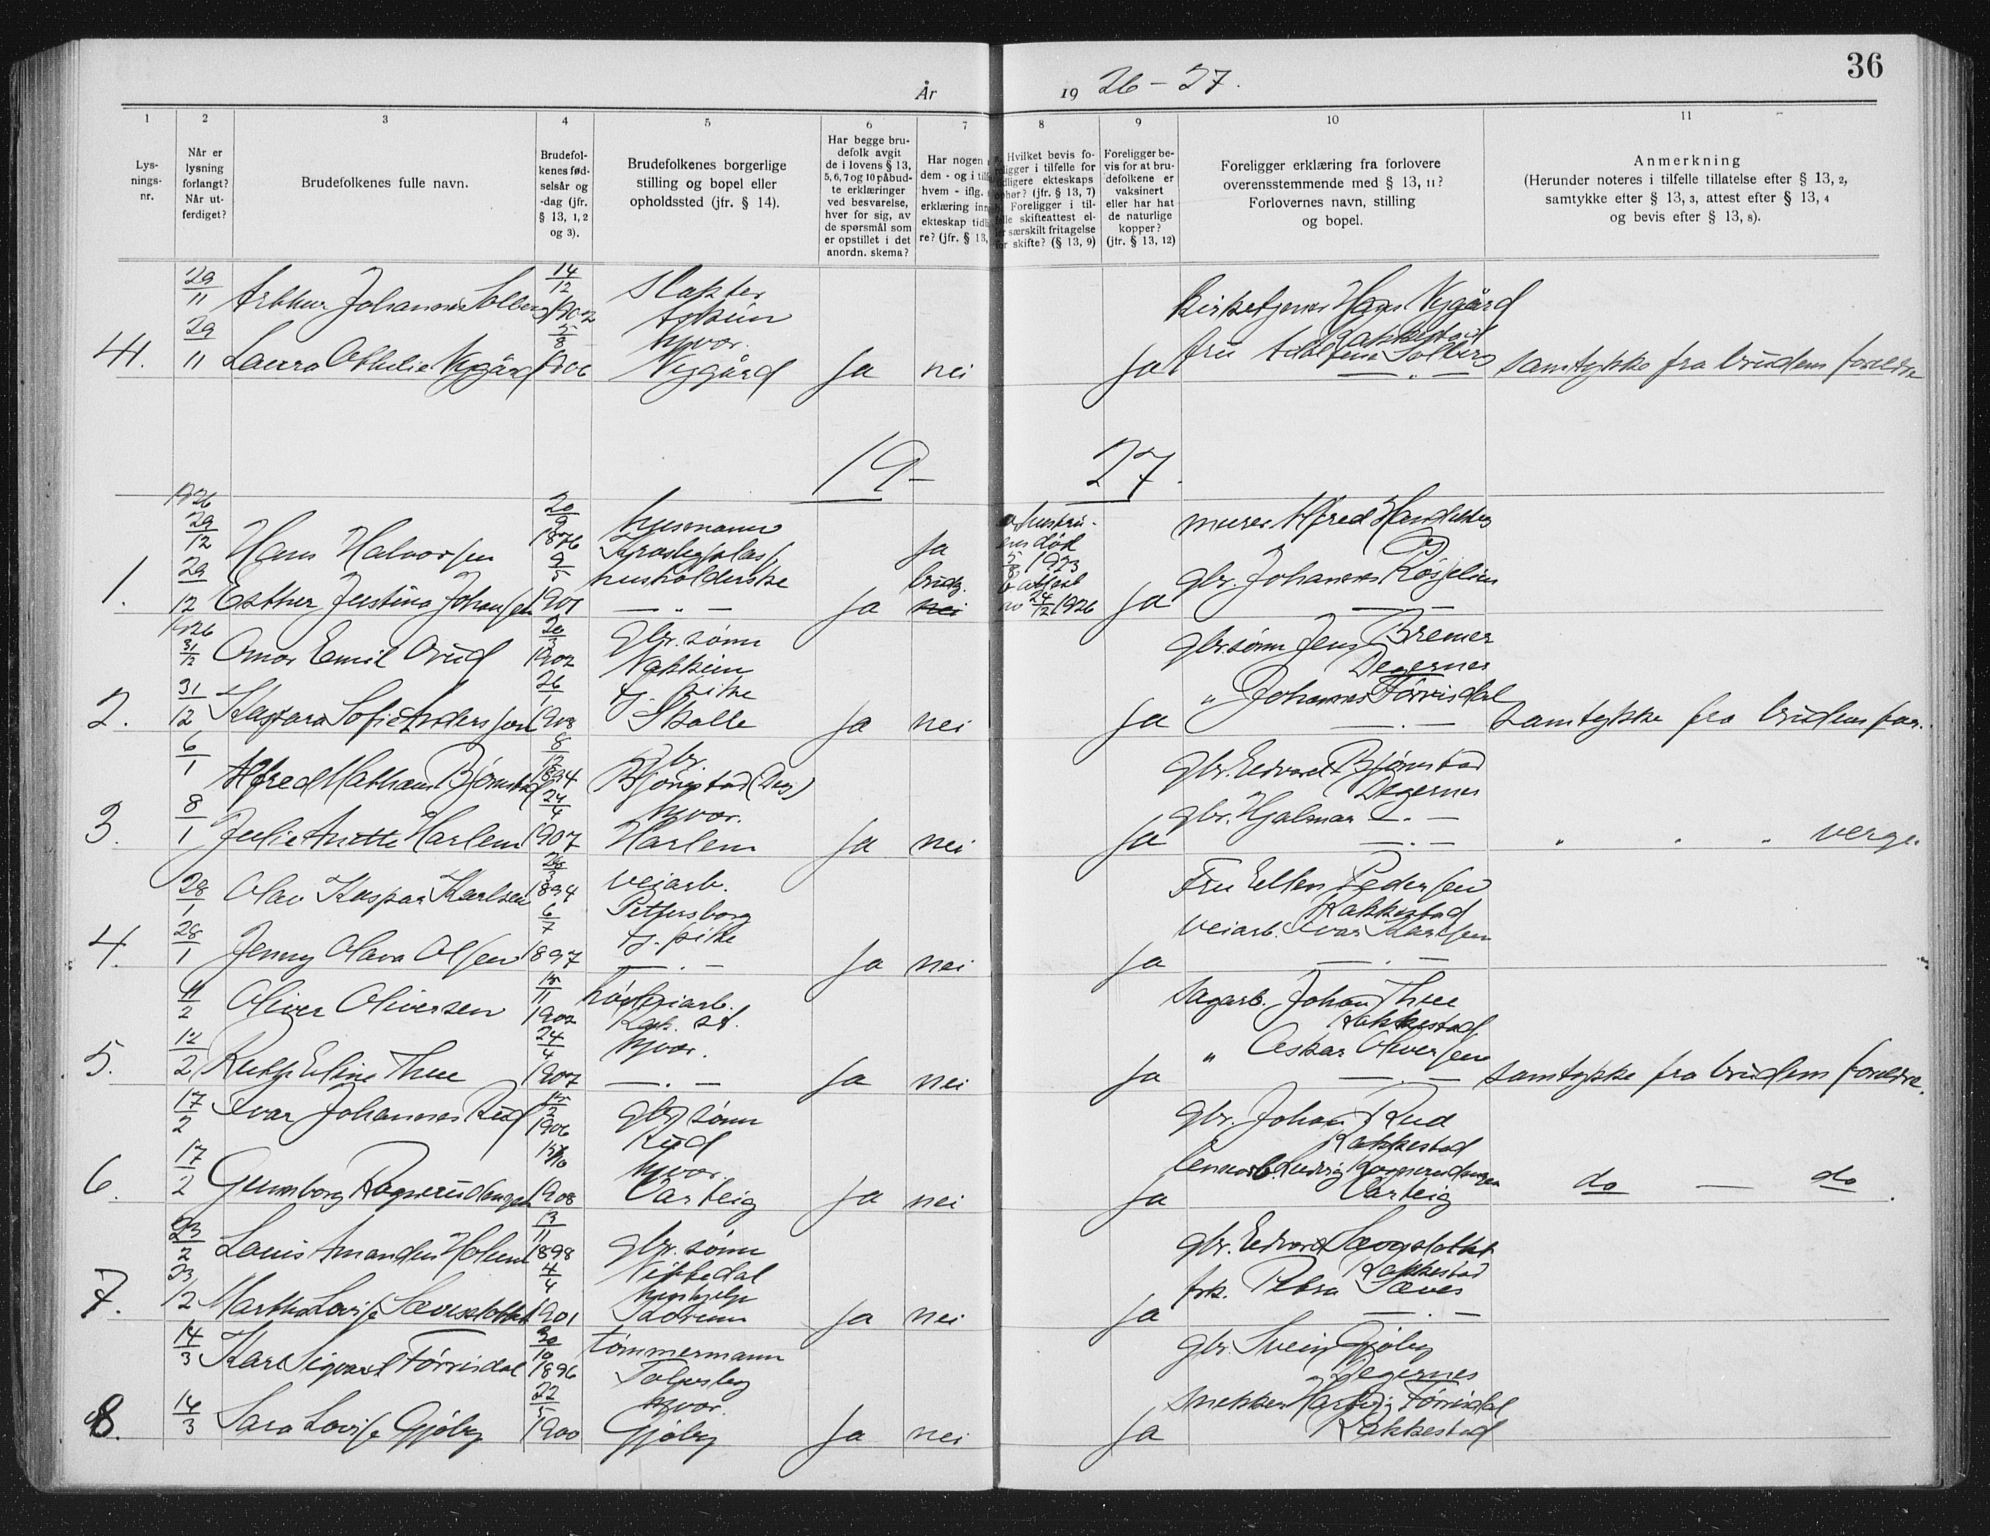 36
År 1926-27.
1 2 3 4 5 6 7 8 9 10 11
Lysnings-nr.
Når er lysning forlangt? Når utferdiget?
Brudefolkenes fulle navn.
Brudefolkenes fødselsår og -dag (jfr. § 13, 1, 2 og 3).
Brudefolkenes borgerlige stilling og bopel eller opholdssted (jfr. § 14).
Har begge brudefolk avgit de i lovens § 13, 5, 6, 7 og 10 påbudte erklæringer ved besvarelse, hver for sig, av de spørsmål som er opstillet i det anordn. skema?
Har nogen
dem - og i
hvem - iflg.
erklæring
ekteskap
re? (jfr. § 13,
Hvilket bevis fo-
ligger i tilfelle for
tidligere ekteskaps
ophør? (jfr. § 13, 7)
Foreligger i til-
felle skifteattest el-
ler særskilt fritagelse
for skifte? (§ 13, 9)
Foreligger bevis for at brudefolkene er vaksinert eller har hat de naturlige kopper? (jfr. § 13, 12)
Foreligger erklæring fra forlovere overensstemmende med § 13, 11? Forlovernes navn, stilling og bopel.
Anmerkning
(Herunder noteres i tilfelle tillatelse efter § 13, 2, samtykke efter § 13, 3, attest efter § 13, 4 og bevis efter § 13, 8).
29/11 Arthur Johannes Solberg 14/12 1902 Slakter
Kirketjener Hans Nygård
Rakkestad
41. 29/11 Laura Othilie Nygård 5/8 1906 hjvær. Nygård Ja nei Ja fru Solberg samtykke fra brudens foreldre
19-27.
1926
29/12 Hans Halvorsen 20/9 1876 husmann ja brudg. hustru-
ens død 1923 murer Alfred
1. 29/12 Esther Justine Johansen 9/5 1901 husholderske — " — Ja nei attest
24/12 1926 Ja gbr. Johannes
1926
31/12 Omar Emil Orud 20/3 1902 gbr.sønn gbr.sønn Jens Bremer
Degernes
2. 31/12 Kaspara Sofie Andersen 26/1 1908 tj. pike Skolle Ja nei Ja " Johannes Førrisdal — " — samtykke fra brudens far.
6/1 Alfred Mathæus Bjørnstad 8/12 1894 gbr. Bjørnstad (Deg.) gbr. Edvard Bjørnstad
Degernes
3. 8/1 Julie Anette Harlem 24/4 1907 hjvær. Harlem Ja nei Ja gbr. Hjalmar — " — " " " verge.
28/1 Olav Kaspar Karlsen 28/3 1894 veiarb. Pettersborg Fru Ellen Pedersen
Rakkestad
4. 28/1 Jenny Olava Olsen 6/7 1897 tj. pike — " — Ja nei Ja veiarb. Ivar Karlsen — " —
11/2 Oliver Oliversen 15/11 1902 Rak. st. sagarb. Johan Thue
Rakkestad
5. 12/2 Ruth Eline Thue 24/4 1907 hjvær. — " — Ja nei Ja " Oskar Oliversen — " — samtykke fra brudens foreldre.
17/2 Ivar Johannes Rud 15/2 1906 gbr sønn Rud gbr. Johan Rud
Rakkestad
6. 17/2 Gunnborg Ragnerudengen 1908 hjvær. Varteig Ja nei Ja Ludvig Ragnerudengen Varteig do — do.
23/2 Louis Amandus Holene 13/11 1898 gbr. sønn gbr. Edvard Sæveslottet
Rakkestad
7. 23/2 Martha Lovise Sæveslottet 4/4 1901 Ja nei Ja frk. Petra Sæves — " —
14/3 Karl Sigvard Førrisdal 30/10 1896 tømmermann gbr. Svein Gjølby
Degernes
8. 14/3 Sara Lovise Gjølby 22/5 1900 hjvær. Gjølby Ja nei Ja snekker Hartvig Førrisdal Rakkestad